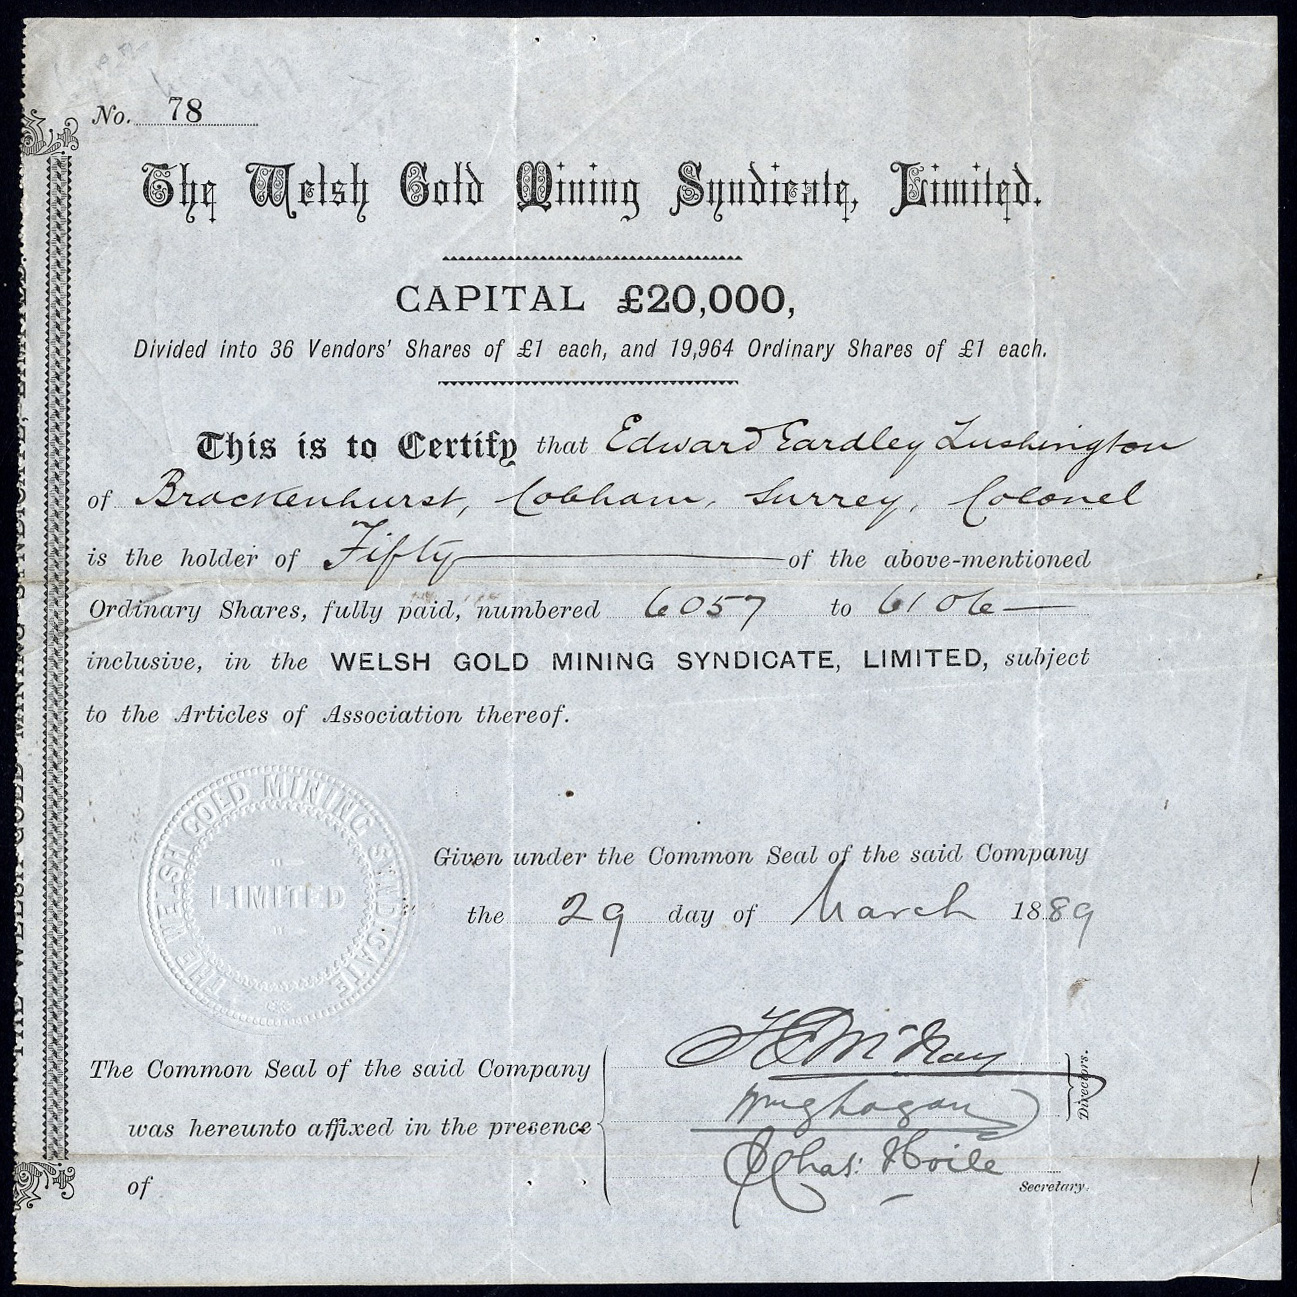 No. 78
The Welsh Gold Mining Syndicate, Limited.
CAPITAL £20,000,
Divided into 36 Vendors' Shares of £1 each, and 19,964 Ordinary Shares of £1 each.
This is to Certify that Edward Eardley Lushington
of Brackenhurst, Cobham, Surrey, Colonel
is the holder of Fifty of the above-mentioned
Ordinary Shares, fully paid, numbered 6057 to 6106
inclusive, in the WELSH GOLD MINING SYNDICATE, LIMITED, subject
to the Articles of Association thereof.
THE WELSH GOLD MINING SYNDICATE
LIMITED
Given under the Common Seal of the said Company
the 29 day of March 1889
The Common Seal of the said Company
was hereunto affixed in the presence
of
Directors.
Chas: Hoile
Secretary.